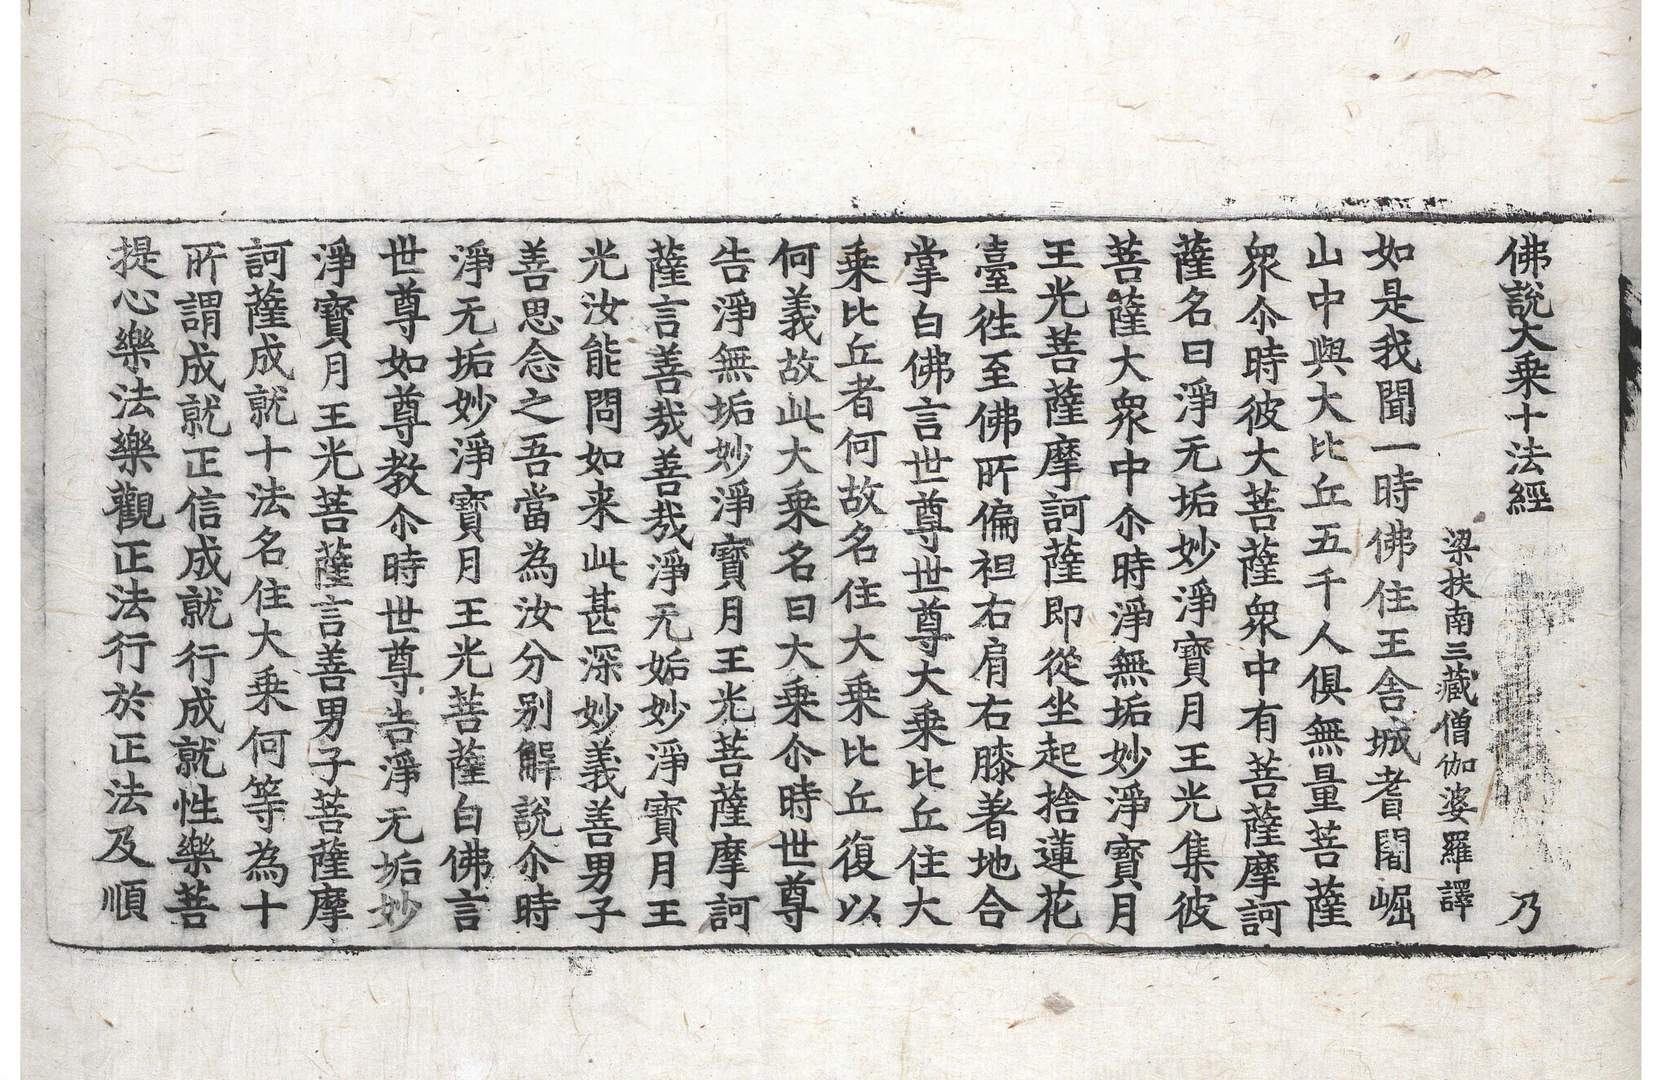 佛説大乗十法經 乃
梁扶南三藏僧伽婆羅譯
如是我聞一時佛住王舍城耆闍崛
山中與大比丘五千人俱無量菩薩
衆尒時彼大菩薩衆中有菩薩摩訶
薩名曰淨无垢妙淨寶月王光集彼
菩薩大衆中尒時淨無垢妙淨寶月
王光菩薩摩訶薩即從坐起捨蓮花
臺往至佛所偏袒右肩右膝著地合
掌白佛言世尊世尊大乗比丘住大
乗比丘者何故名住大乗比丘復以
何義故此大乗名曰大乗尒時世尊
告淨無垢妙淨寶月王光菩薩摩訶
薩言善哉善哉淨无姤妙淨寶月王
光汝能問如来此甚深妙義善男子
善思念之吾當為汝分别解說尒時
淨无垢妙淨寶月王光菩薩白佛言
世尊如尊教尒時世尊告淨无垢妙
淨寶月王光菩薩言善男子菩薩摩
訶薩成就十法名住大乗何等為十
所謂成就正信成就行成就性樂菩
提心樂法樂觀正法行於正法及順